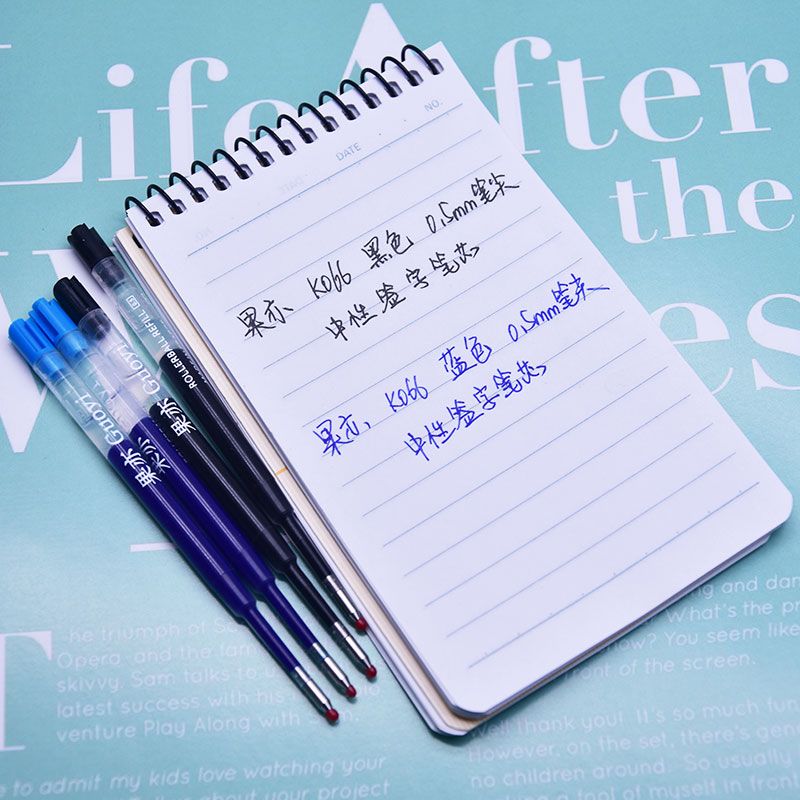 Life After
the
NO.
DATE
果亦 K066 黑色 0.5mm笔尖
中性签字笔芯
果亦 K066 蓝色 0.5mm笔尖
中性签字笔芯
ROLLERBALL REFILL
果亦 Guoyi
果亦 Guoyi
-he triumph of
Opera-and the
skivvy. Sam talks
latest success with his
venture Play Along with
to admit my kids love watching your
about your project
and
What's the
now? You seem like
front of the screen.
Well thank you! It's so much fun
However, on the set, there's
no children around. So
a fool of myself in front